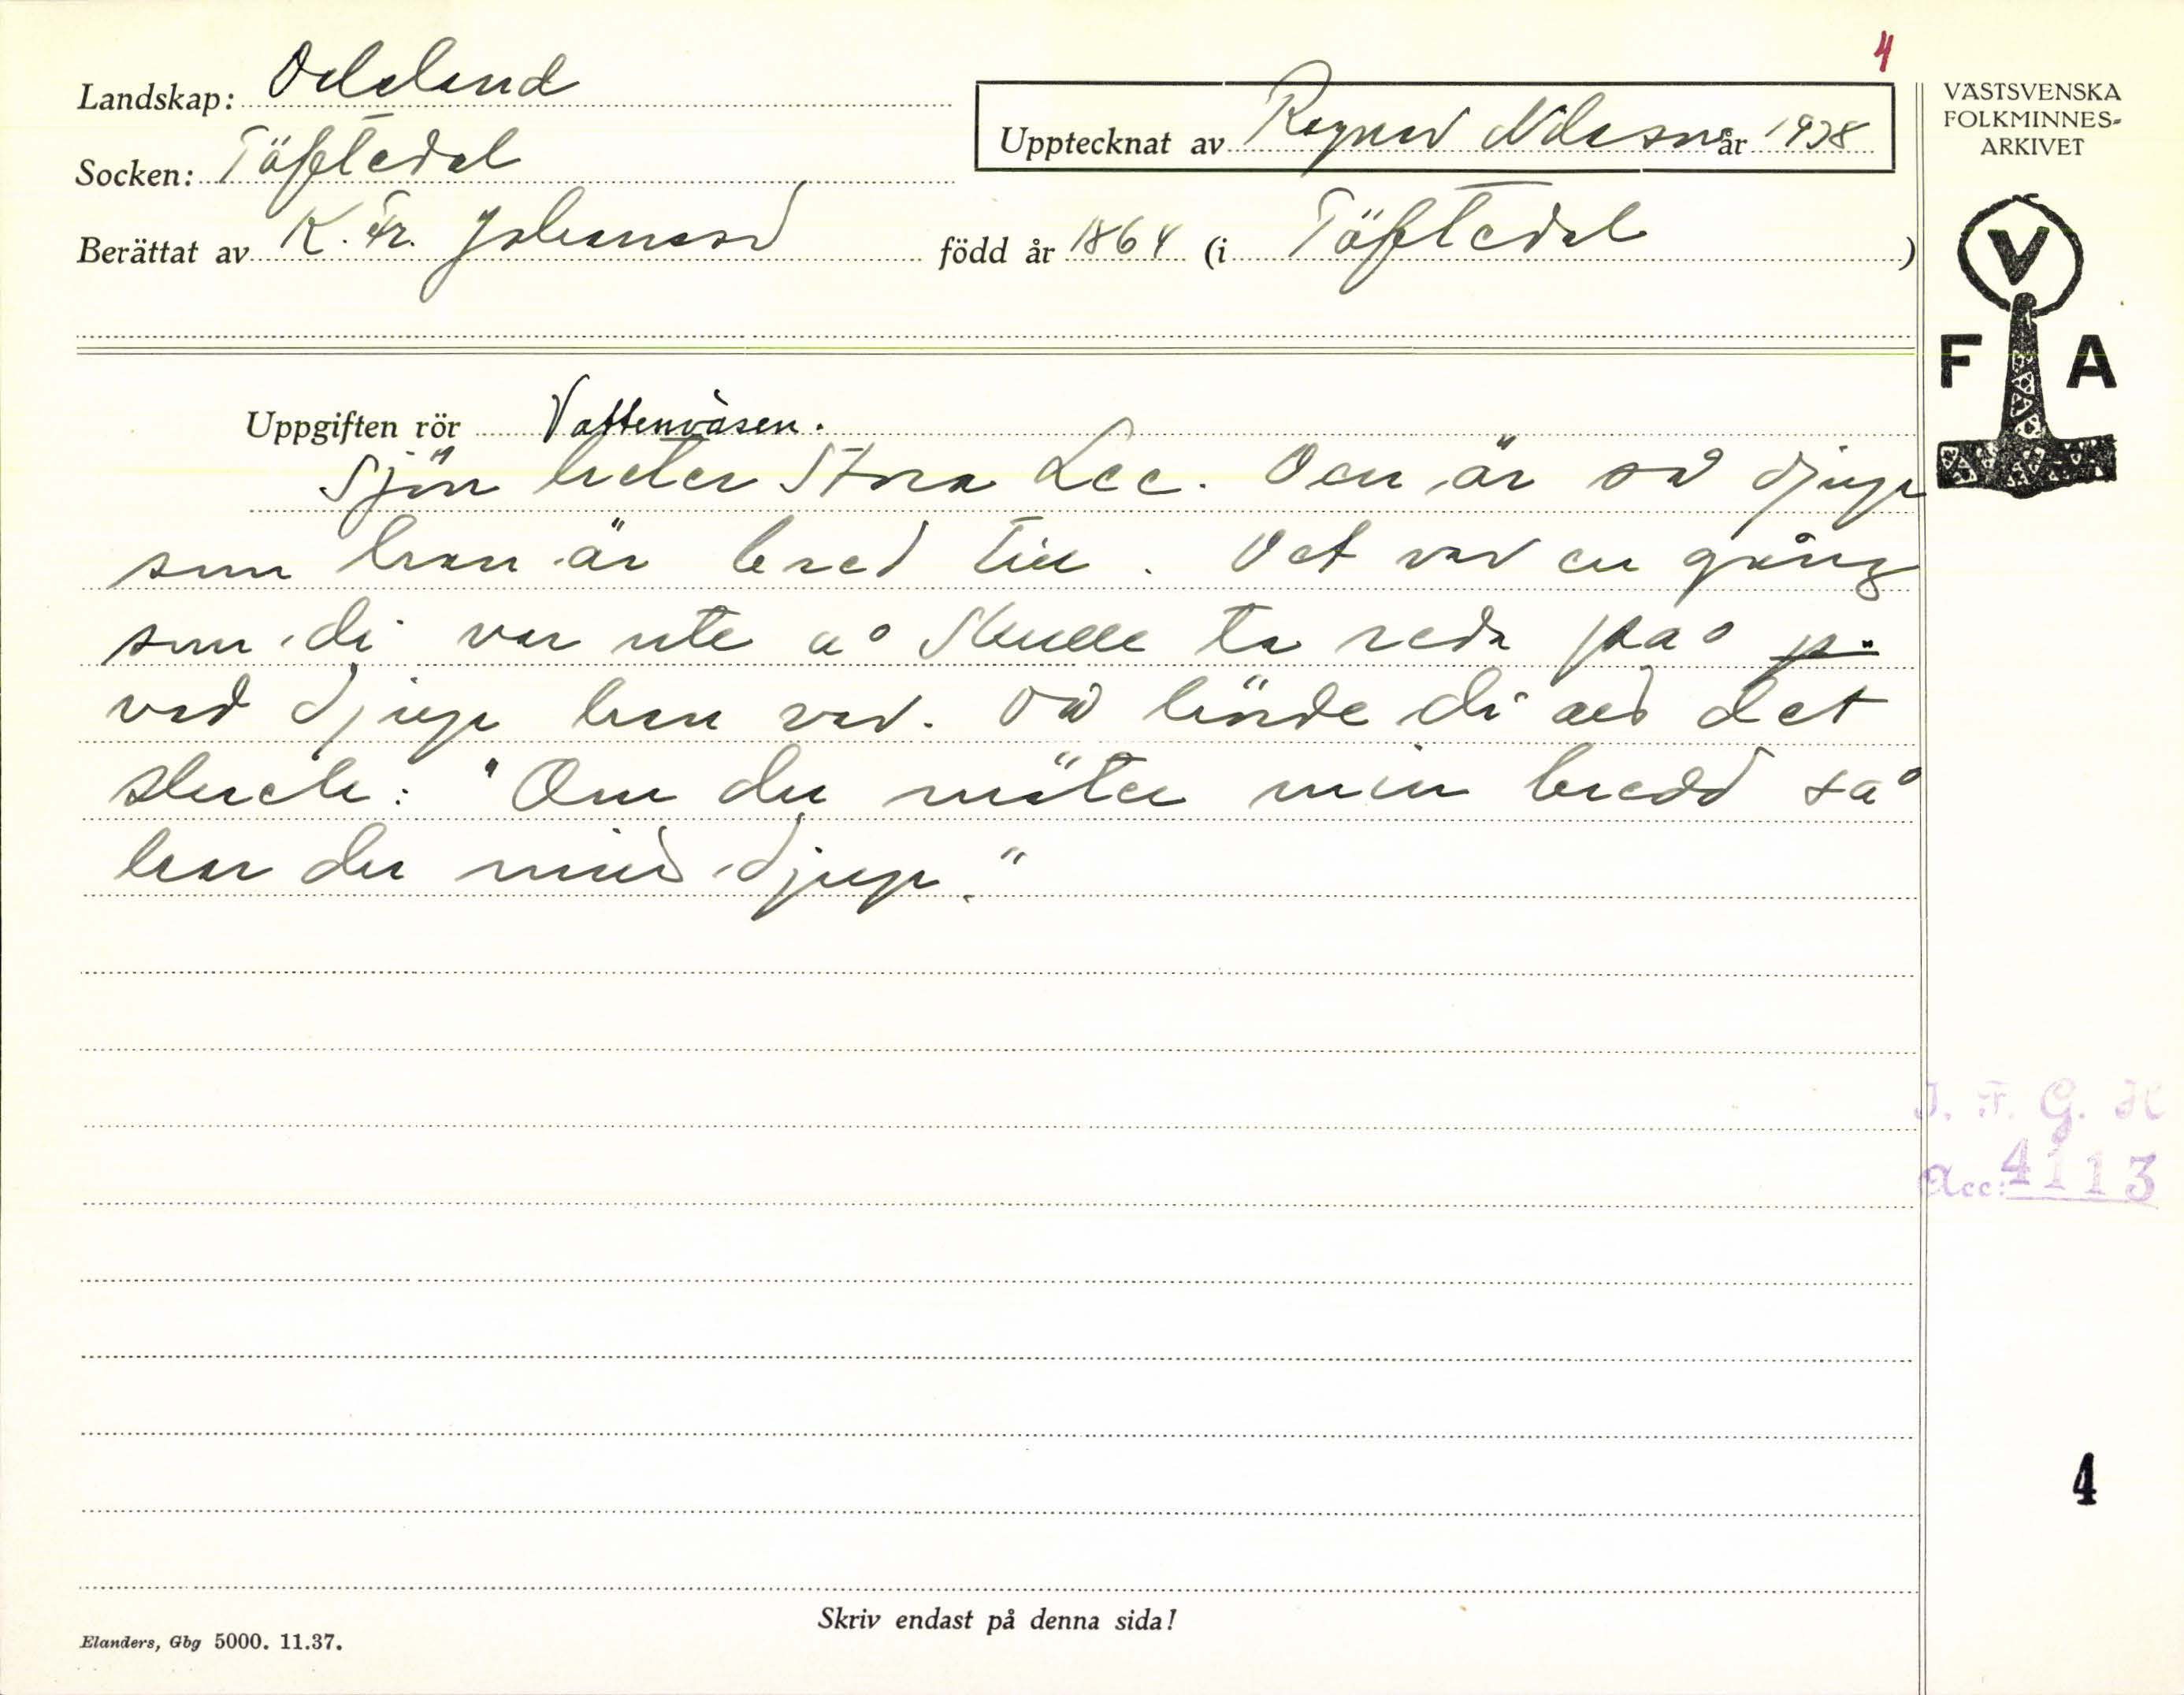 4
Landskap: Dalsland
Upptecknat av Ragnar Nilsson år 1938
VÄSTSVENSKA
FOLKMINNES-
ARKIVET
Socken: Töftedal
Berättat av K. Fr. Johansson född år 1864 (i Töftedal)
V
F A
Uppgiften rör Vattenväsen.
Sjön heter Stora Lee. Den är så djup
som han är bred till. Det var en gång
som di var ute å skulle ta reda på
vad djup han var. Så hörde di att det
skrek: "Om du mäter min bredd så
har du mitt djup."
J. F. G. H
Acc: 4113
4
Skriv endast på denna sida!
Elanders, Gbg 5000. 11.37.